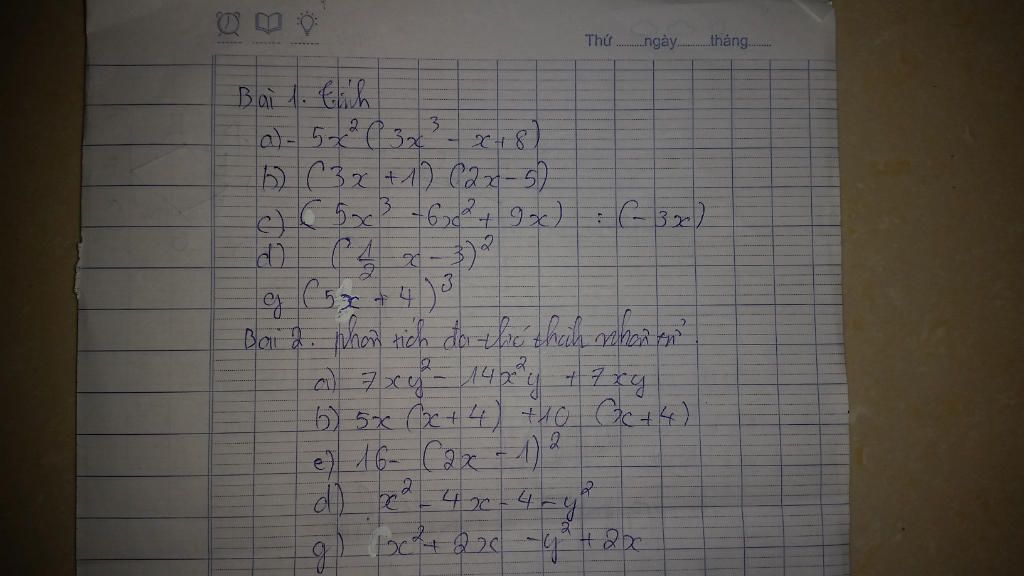 Thứ ........ngày........tháng.......
Bài 1. tính
a) - 5x² (3x³ - x + 8)
b) (3x + 1) (2x - 5)
c) (5x³ - 6x² + 9x) : (-3x)
d) (1/2 x - 3)²
g) (5x + 4)³
Bài 2. phân tích đa thức thành nhân tử.
a) 7xy² - 14x²y + 7xy
b) 5x (x + 4) + 10 (x + 4)
c) 16 - (2x - 1)²
d) x² - 4x - 4 - y²
g) x² + 2x - y² + 2x